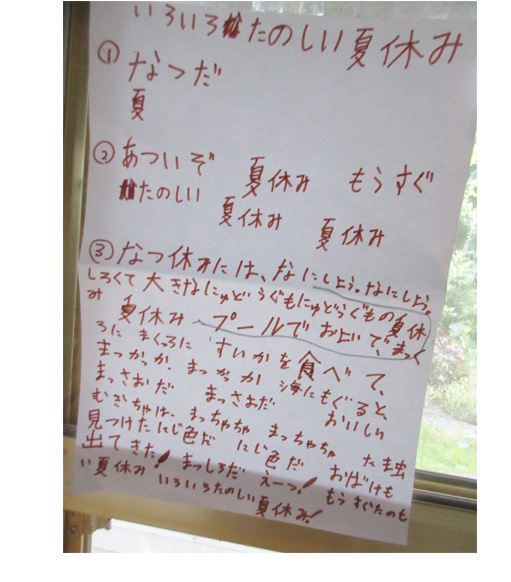 いろいろたのしい夏休み
①なつだ
夏
②あついぞ 夏休み もうすぐ
たのしい 夏休み 夏休み
③なつ休みには、なにしよう。なにしよう。
しろくて大きなにゅどうぐもにゅどうぐもの夏休
み 夏休み プールでおよいで、まっく
ろに まっくろに すいかを食べて、
まっかっか まっかっか 海にもぐると、
まっさおだ まっさおだ おいしい
むぎちゃは、まっちゃちゃ まっちゃちゃ たま虫
見つけたにじ色だ にじ色だ おばけも
出てきた! まっしろだ えーっ! もうすぐたのし
い夏休み いろいろたのしい
夏休み!